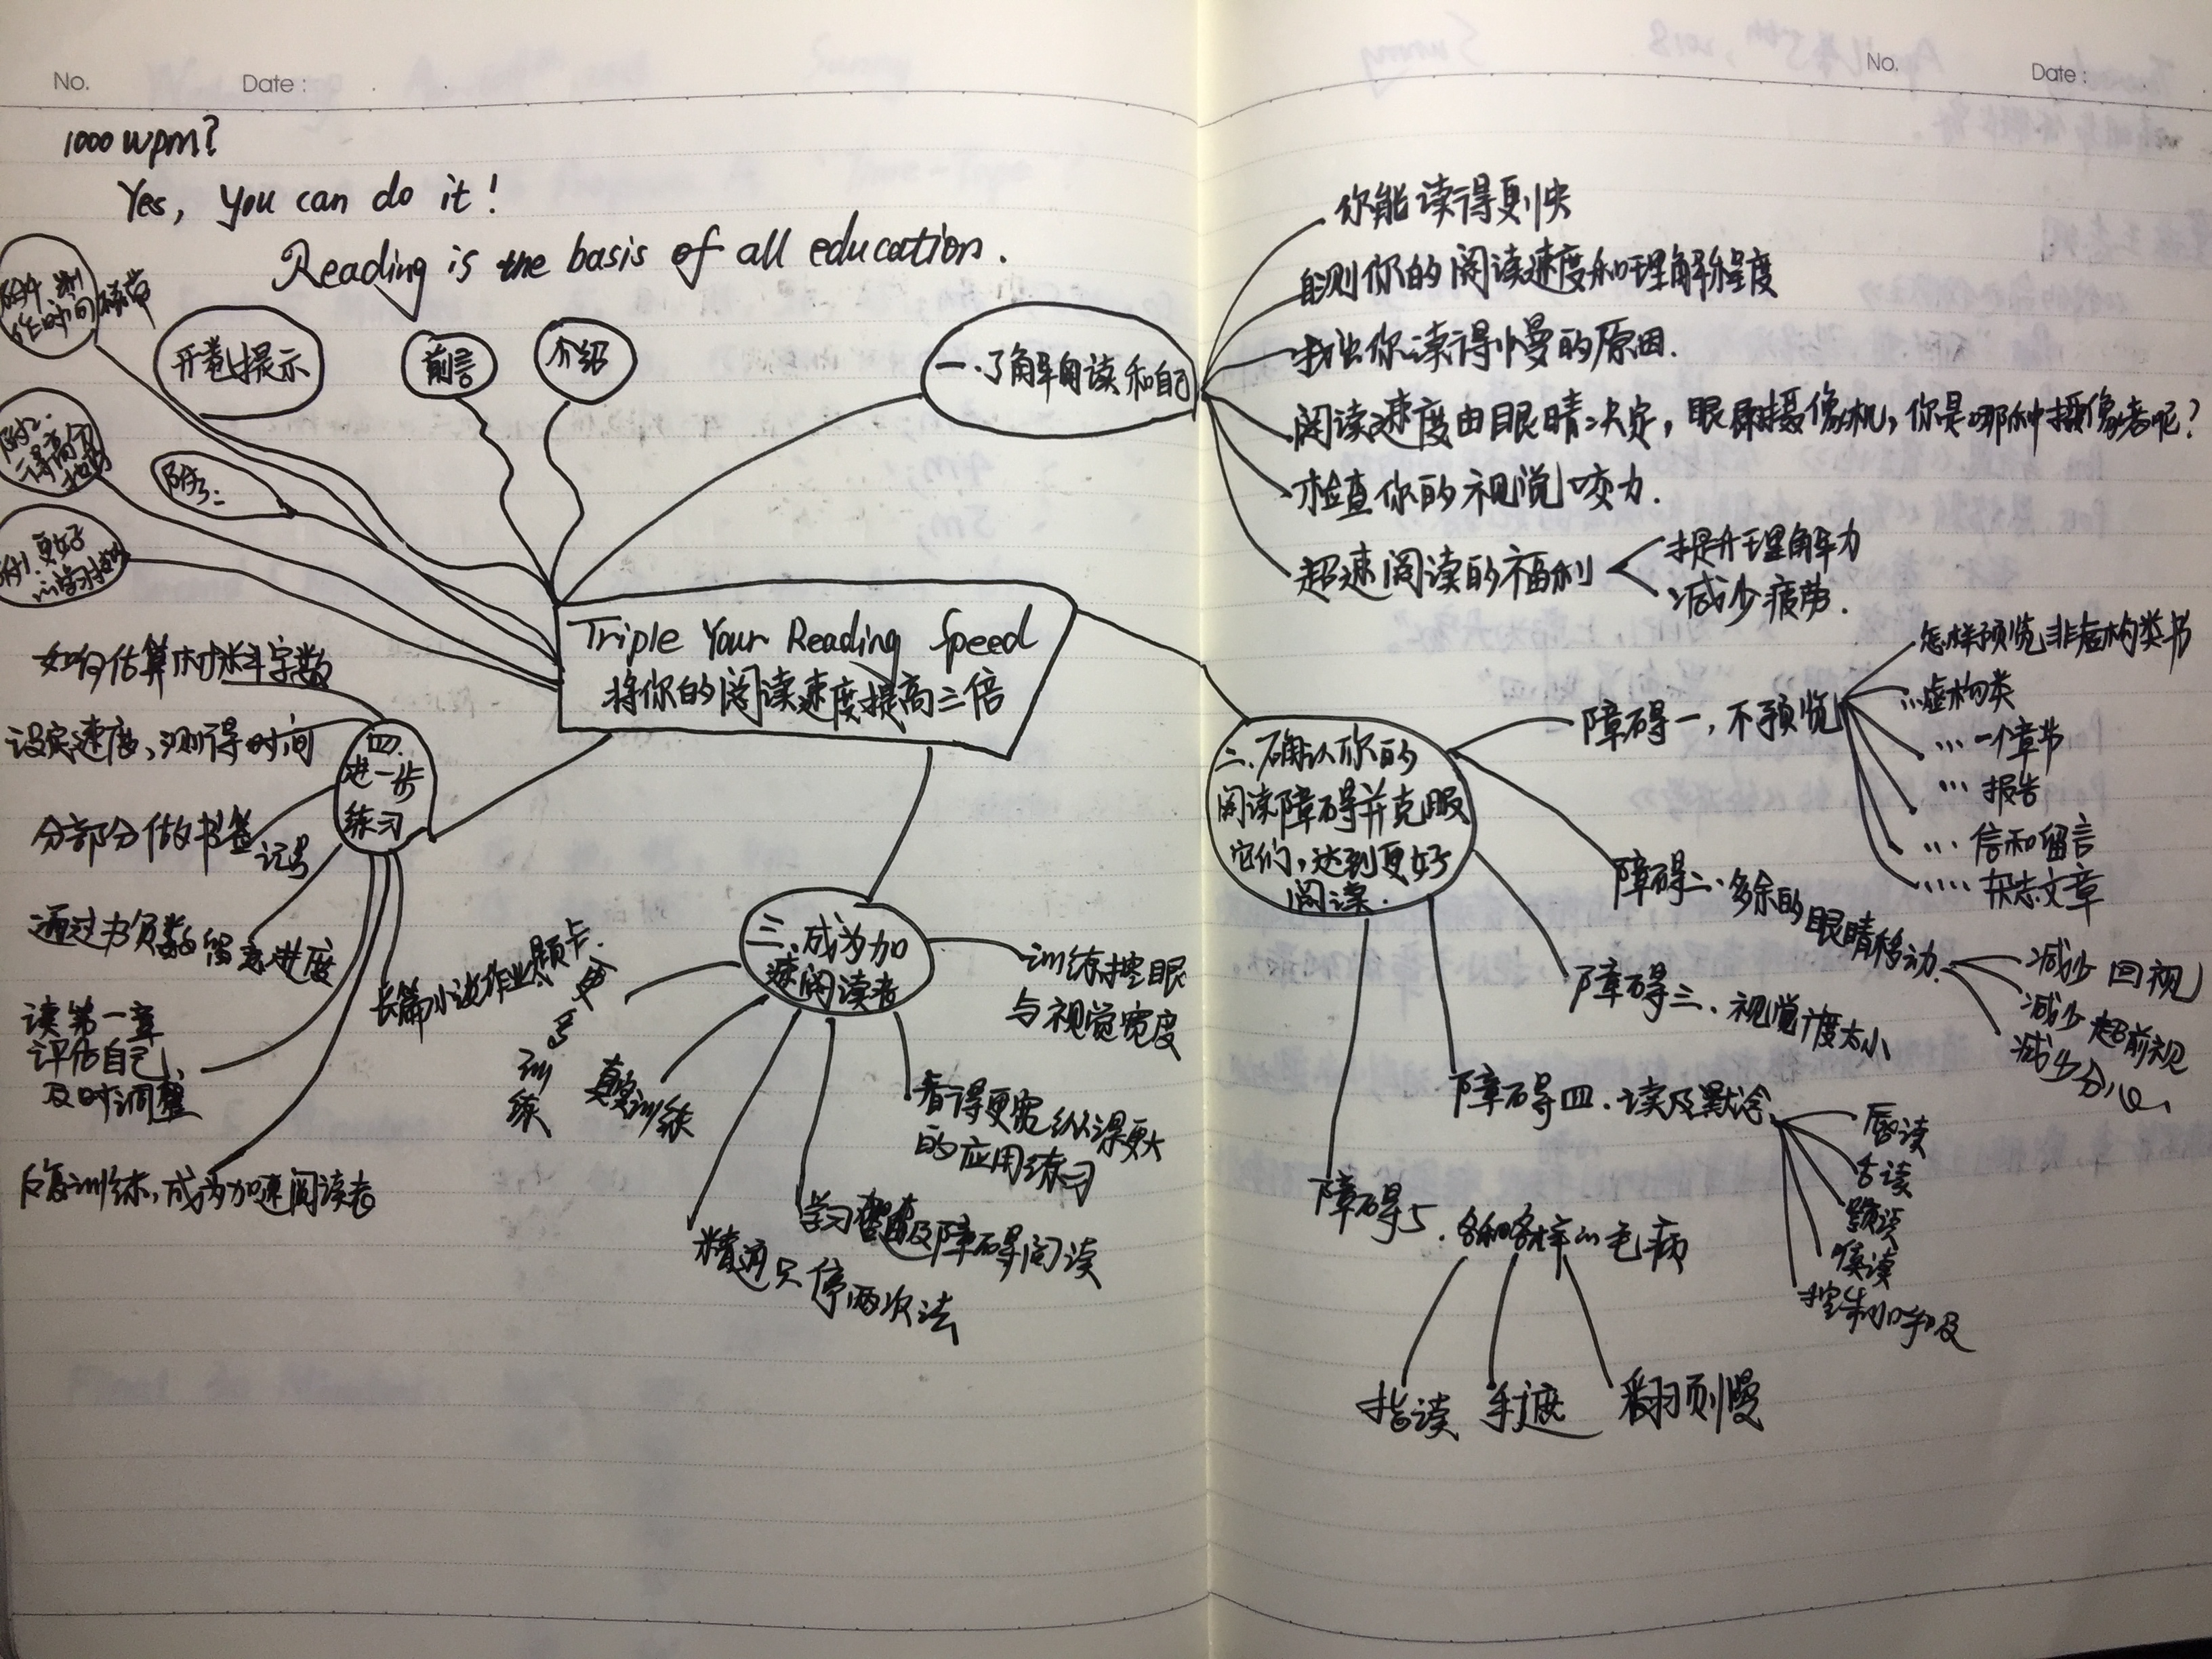 No.
Date :
No.
Date :
1000 wpm?
Yes, you can do it!
Reading is the basis of all education.
开卷提示
前言
介绍
附3:
附2.
附1. 更好
Triple Your Reading Speed
将你的阅读速度提高三倍
一.了解阅读和自己
你能读得更快
自测你的阅读速度和理解程度
找出你读得慢的原因.
阅读速度由眼睛决定,眼尿摄像机,你是哪种摄像者呢?
检查你的视觉咬力.
超速阅读的福利
提升理解力
减少疲劳.
二.确认你的
阅读障碍并克服
它们,达到更好
阅读.
障碍一,不预览
怎样预览非虚构类书
...虚构类
...一个章节
... 报告
... 信和留言
.... 杂志文章
障碍二.多余的眼睛移动.
减少回视
减少超前视
减少分心.
障碍三.视觉广度太小
障碍四.读及默念
唇读
舌读
颚读
喉读
控制呼吸
障碍5.各种各样的毛病
指读
手遮
翻页慢
三.成为加
速阅读者
训练控眼
与视觉宽度
看得更宽纵深更大
的应用练习
障碍阅读
精通只停两次法
真实训练
训练
四.
进一步
练习
如何估算材料字数
设定速度,测得时间
分部分做书签
记号
通过书页数留意进度
读第一章
评估自己,
及时调整
反复训练,成为加速阅读者
长篇小说作业题卡.